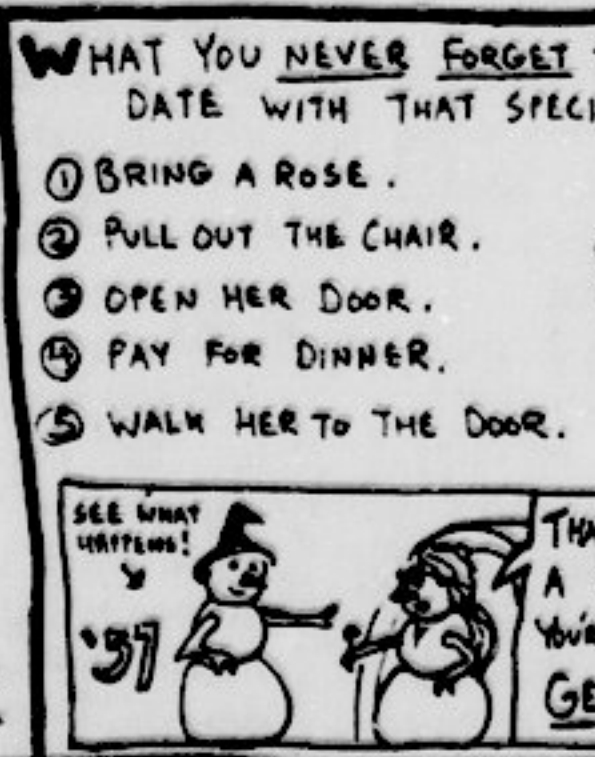 WHAT YOU NEVER FORGET
DATE WITH THAT SPECI
① BRING A ROSE.
② PULL OUT THE CHAIR.
③ OPEN HER DOOR.
④ PAY FOR DINNER.
⑤ WALK HER TO THE DOOR.
SEE WHAT
HAPPENS!
'37
THA
A
YOU'R
GE